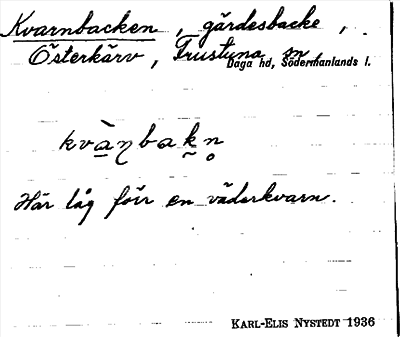 Kvarnbacken, gärdesbacke,
Österkärv, Frustuna sn,
Daga hd, Södermanlands l.
kvàɳbak̰n̥
Här låg förr en väderkvarn.
KARL-ELIS NYSTEDT 1936